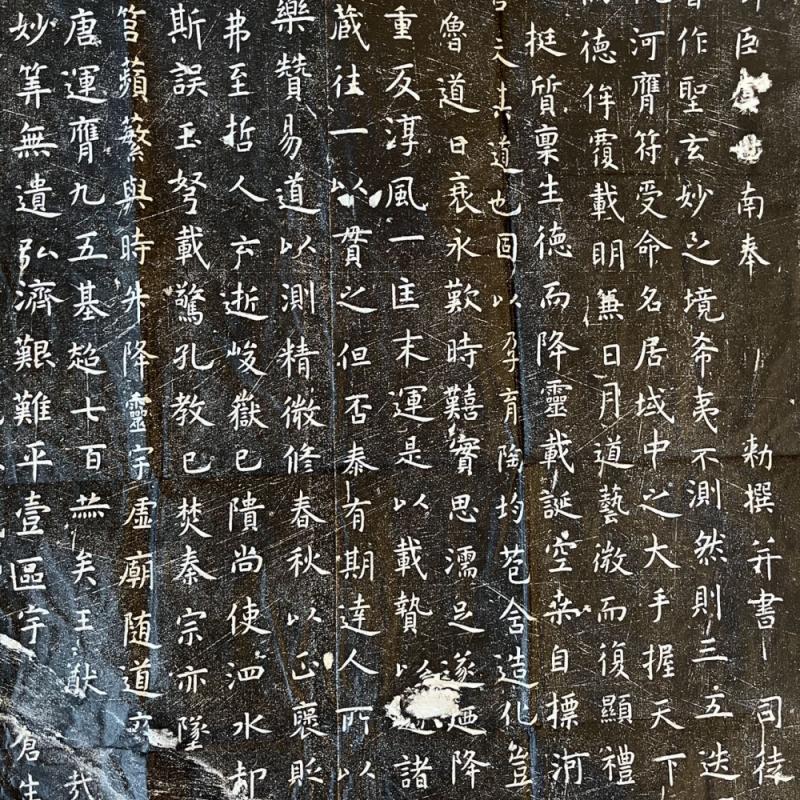 臣虞世南奉 勅撰并書 司徒
作聖玄妙之境希夷不測然則三五迭
河膺符受命名居域中之大手握天下
德侔覆載明兼日月道藝微而復顯禮
挺質稟生德而降靈載誕空桒自摽河
夫其道也固以孕育陶均苞含造化豈
魯道日衰永歎時艱實思濡足遂迺降
重反淳風一匡末運是以載贄以諸
藏往一以貫之但否泰有期達人所以
樂贊易道以測精微修春秋以正襃貶
弗至哲人云逝峻嶽已隤尚使泗水却
斯誤玉弩載驚孔教已焚秦宗亦墜
筥蘋蘩與時升降靈宇虛廟随道
唐運膺九五基超七百赫矣王猷 哉
妙筭無遺弘濟艱難平壹區宇 蒼生